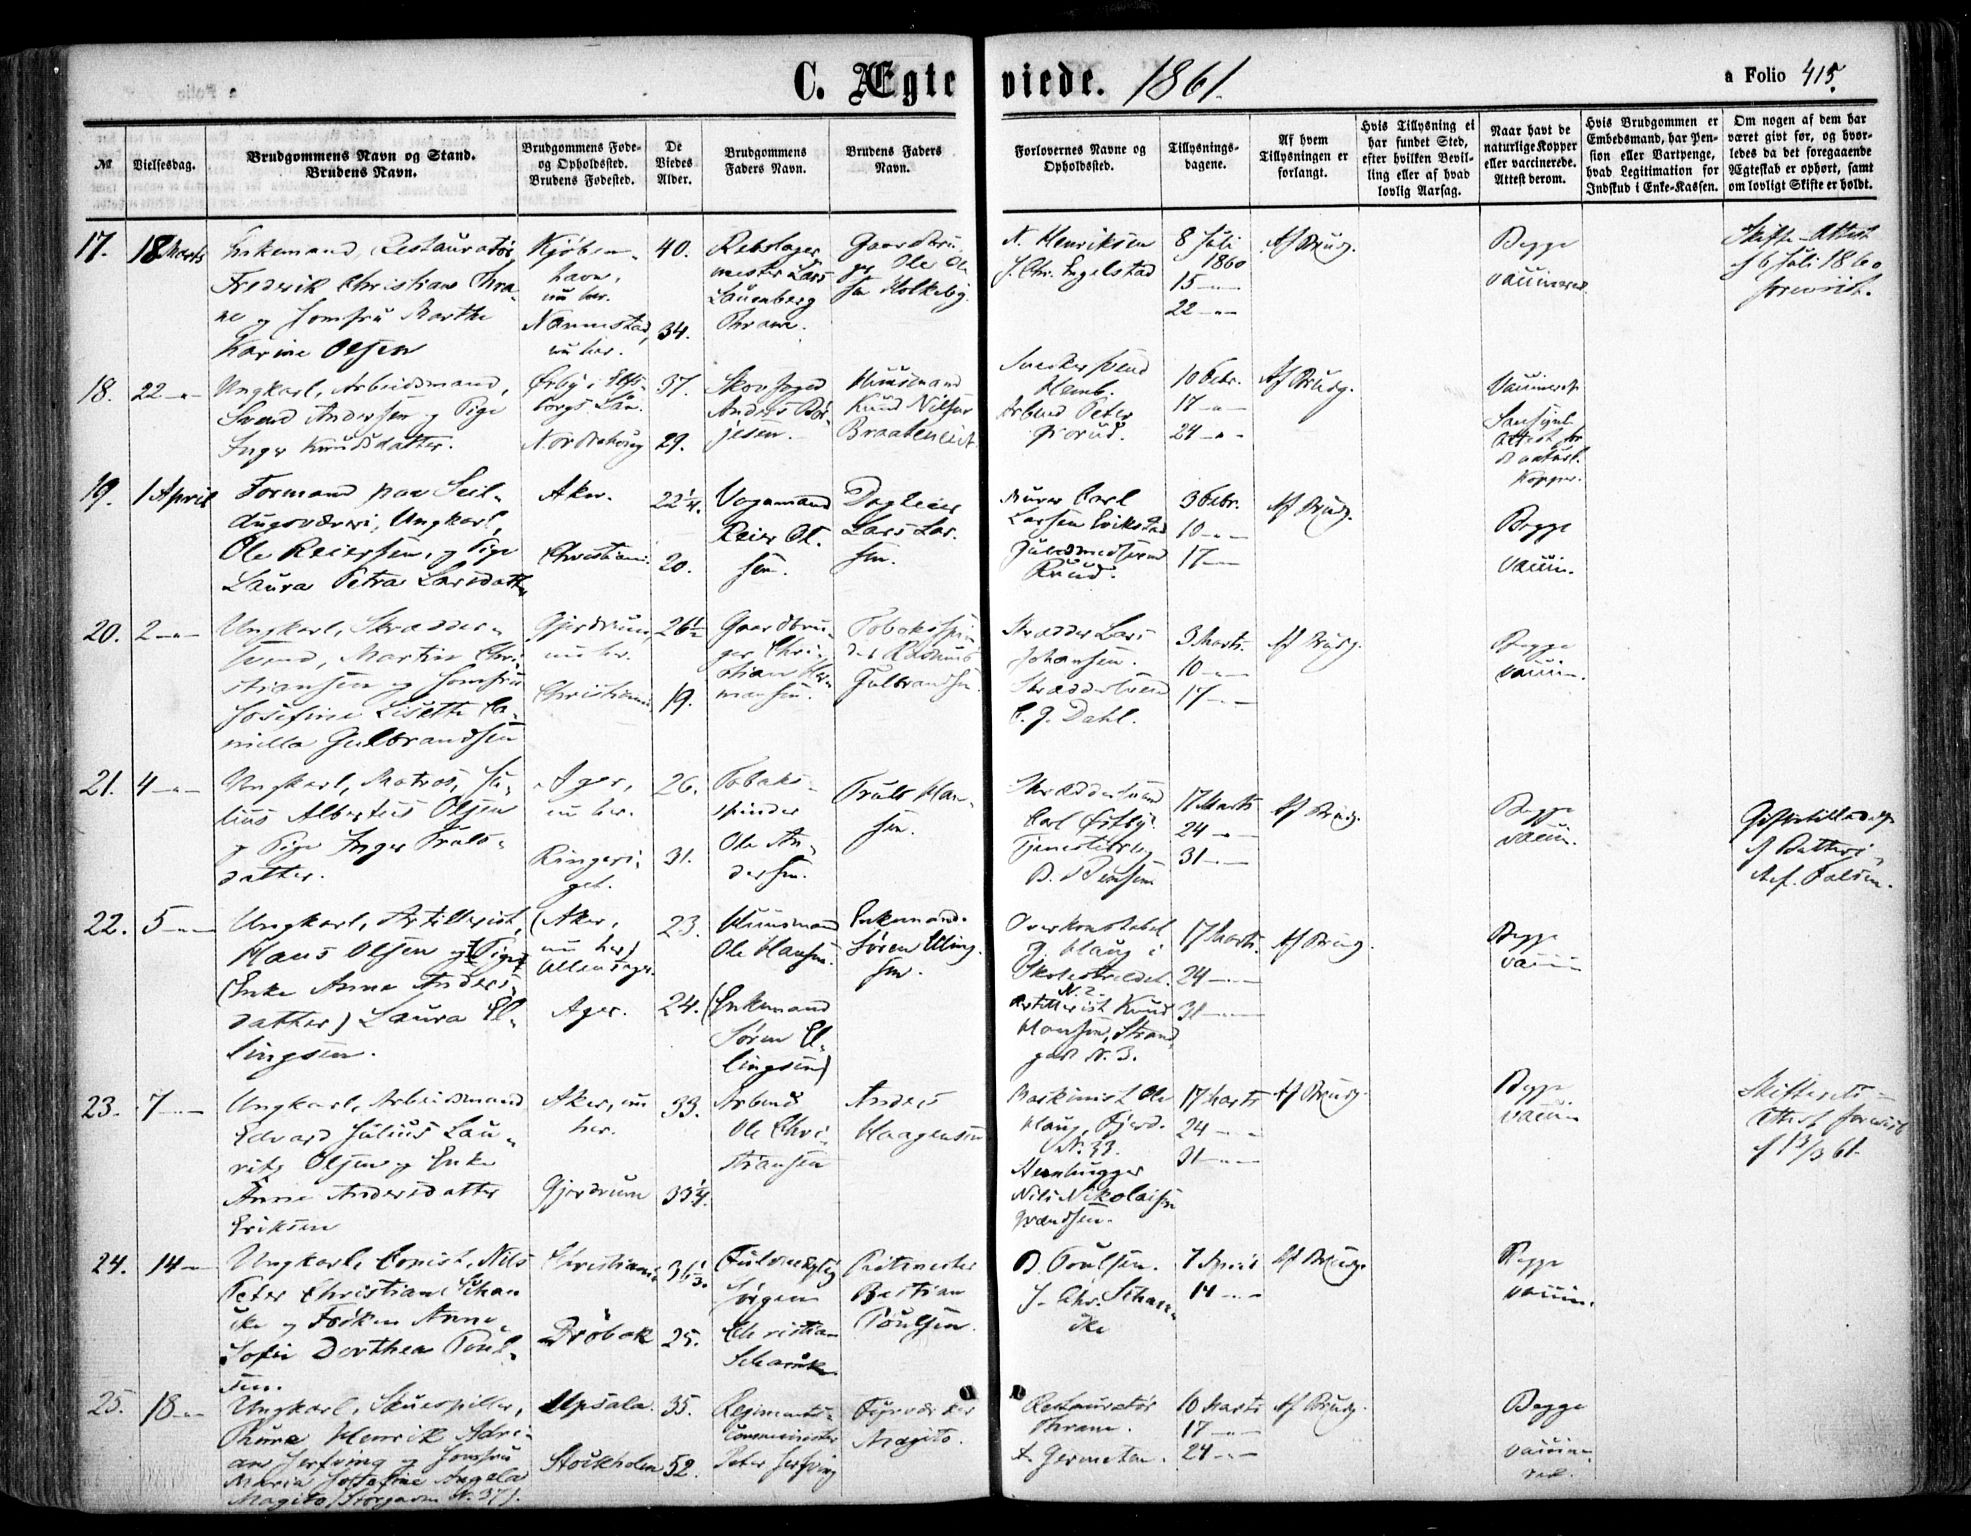 C. Ægteviede. 1861.
a Folio 415.
№
Vielsesdag.
Brudgommens Navn og Stand.
Brudens Navn.
Brudgommens Føde-
og Opholdssted.
Brudens Fødested.
De
Viedes
Alder.
Brudgommens
Faders Navn.
Brudens Faders
Navn.
Forlovernes Navne og
Opholdssted.
Tillysnings-
dagene.
Af hvem
Tillysningen er
forlangt.
Hvis Tillysning ei
har fundet Sted,
efter hvilken Bevil-
ling eller af hvad
lovlig Aarsag.
Naar havt de
naturlige Kopper
eller vaccinerede.
Attest derom.
Hvis Brudgommen er
Embedsmand, har Pen-
sion eller Vartpenge,
hvad Legitimation for
Indskud i Enke-Kassen.
Om nogen af dem har
været givt før, og hvor-
ledes da det foregaaende
Ægteskab er ophørt, samt
om lovligt Skifte er holdt.
17.
18 Marts
Enkemand, Restauratør
Frederik Christian Thra-
ne og Jomfru Marthe
Karine Olsen
Kjøben-
havn,
nu her.
Nannestad,
nu her.
40.
34.
Rebslager
mester Lars
Lauenberg
Thrane.
Gaardbru-
ger Ole Ol-
sen Holkeby.
N. Henriksen
J. Chr. Engelstad
8 Juli
1860
15 -"-
22 -"-
Af Brudg.
Begge
vaccinered.
Skifte-Attest
af 6 Juli 1860
foreviist.
18.
22 -"-
Ungkarl, Arbeidsmand,
Svend Andersen og Pige
Inger Knudsdatter.
Ørby i Elfs-
borgs Län.
Nordrehoug
37.
29.
Skovfoged
Anders Bör-
jesen.
Huusmand
Knud Nilsen
Braateneiet
Snekkersvend
Hamb.
Arbmd Peter
Grorud.
10 Febr.
17 -"-
24 -"-
Af Brudg.
Vaccineret.
Attest for
d. naturl.
Kopper.
19.
1 April
Formand paa Seil-
dugsværvei, Ungkarl,
Ole Reiersen, og Pige
Laura Petra Larsdatter
Aker.
Christiania.
22 1/4.
20.
Vognmand
Reier Ol-
sen.
Dagleier
Lars Lar-
sen.
Murer Carl
Larsen Evikstad
Guldsmedsvend
Ruud.
3 Febr.
10 -"-
17 -"-
Af Brudg.
Begge
vaccin.
20.
2 -"-
Ungkarl, Skrædder-
svend, Martin Chri-
stiansen og Jomfru
Josefine Lisette Ca-
milla Gulbrandsen
Gjerdrum,
nu her.
Christiania
26 1/2
19.
Gaardbru-
ger Chri-
stian Her-
mansen.
Tobakspin-
der Rasmus
Gulbrandsen.
Skrædder Lars
Johansen.
Skræddersvend
C. G. Dahl.
3 Marts.
10 -"-
17 -"-
Af Brudg.
Begge
vaccin.
21.
4 -"-
Ungkarl, Matros, Ju-
lius Albertus Olsen
og Pige Inger Truls-
datter.
Ager,
nu her.
Ringeri-
get.
26.
31.
Tobaks-
spinder
Ole An-
dersen.
Truls Han-
sen.
Skræddersvend
Carl Østby.
B. Jensen
17 Marts
24 -"-
31 -"-
Af Brudg.
Begge
vaccin.
22.
5 -"-
Ungkarl, Artillerist,
Hans Olsen og Pige
(Enke Anne Anders-
datter) Laura El-
lingsen.
(Aker,
nu her)
Ullensager.
Ager.
23.
24.
Huusmand
Ole Hansen.
(Enkemand
Søren El-
lingsen)
Enkemand
Søren Elling-
sen.
Overkonstabel
J. Haug i
N. 2.
Artillerist Knud
Hansen, Strand
gad. N. 3.
17 Marts.
24 -"-
31 -"-
Af Brudg.
Begge
vaccin
23.
7 -"-
Ungkarl, Arbeidsmand
Edvard Julius Lau-
ritz Olsen og Enke
Anne Andersdatter
Eriksen
Aker, nu
her.
Gjerdrum
33.
33 1/4.
Arbmd
Ole Chri-
stiansen
Anders
Haagensen
Maskinist Ole
Haug, Fjerd.
N. 33.
Steenhugger
Nils Nikolaisen
17 Marts
24 -"-
31 -"-
Af Brudg.
Begge
vaccin
Skifterets-
Attest foreviist
af 13/3 61.
24.
14 -"-
Ungkarl, Copist, Nils
Peter Christian Schan
cke og Frøken Anne
Sofie Dorthea Poul-
sen.
Christiania
Drøbak
36 1/3.
25.
Fuldmægtig
Jørgen
Christian
Schancke
Ritmester
Bastian
Poulsen.
D. Poulsen.
J. Chr. Schan-
cke
7 April
14 -"-
Af Brudg.
Begge
vaccin.
25.
18 -"-
Ungkarl, Skuespiller,
Thure Henrik Adri-
an Hertving og Jomfru
Maria Josefine Angela
Magito (Storgaden N. 37).
Upsala.
Stockholm
35.
52.
Regiments-
Peter
Fyrværker
Magito.
Restauratør
Thrane.
A. Germeten.
10 Marts
17 -"-
24 -"-
Af Brudg.
Begge
vaccine-
red.